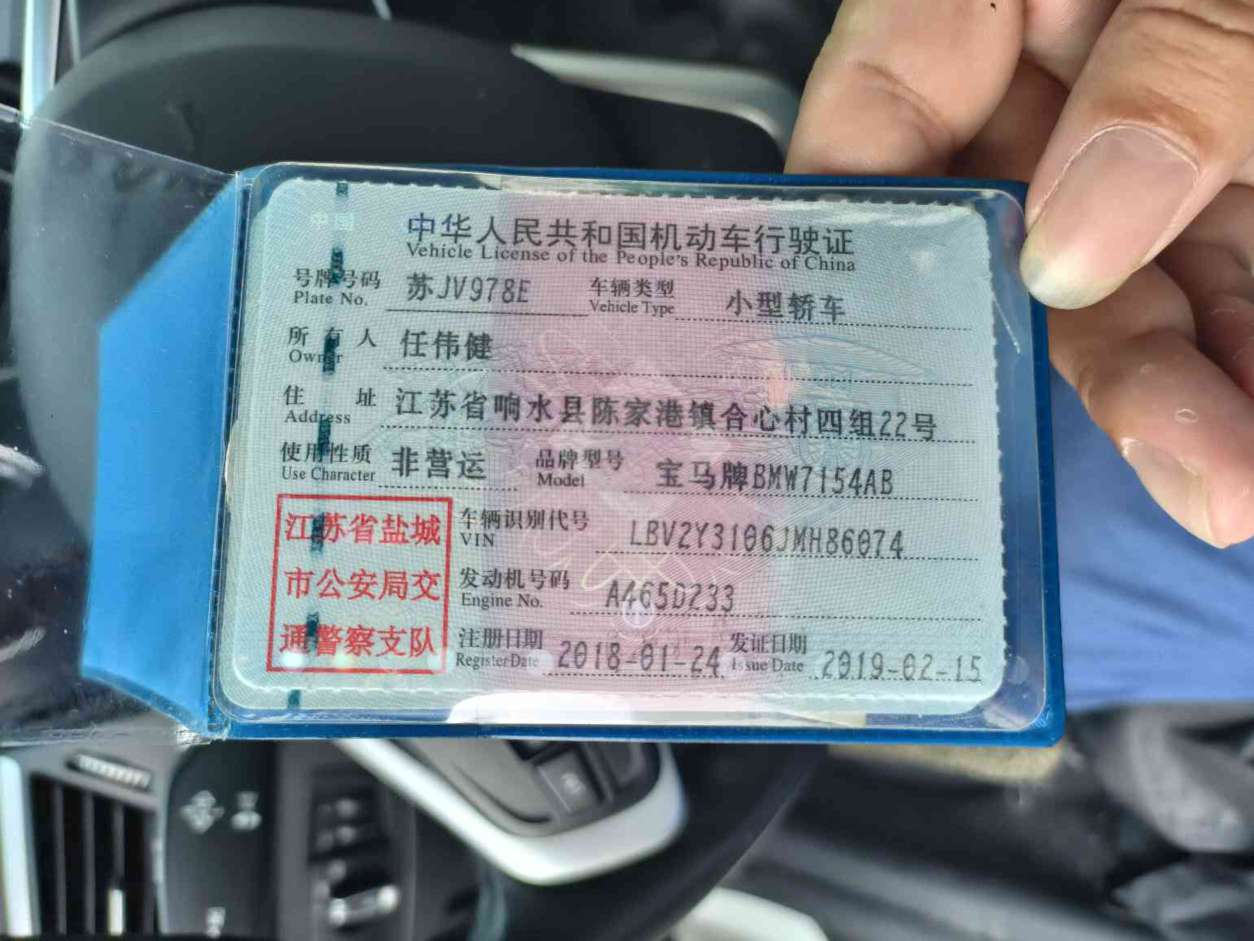 中华人民共和国机动车行驶证
Vehicle License of the People's Republic of China
号牌号码 苏JV978E 车辆类型 小型轿车
Plate No. Vehicle Type
所有人 任伟健
Owner
住址 江苏省响水县陈家港镇合心村四组22号
Address
使用性质 非营运 品牌型号 宝马牌BMW7154AB
Use Character Model
江苏省盐城
市公安局交
通警察支队
车辆识别代号 LBV2Y3106JMH86074
VIN
发动机号码 A465D233
Engine No.
注册日期 2018-01-24 发证日期 2019-02-15
Register Date Issue Date